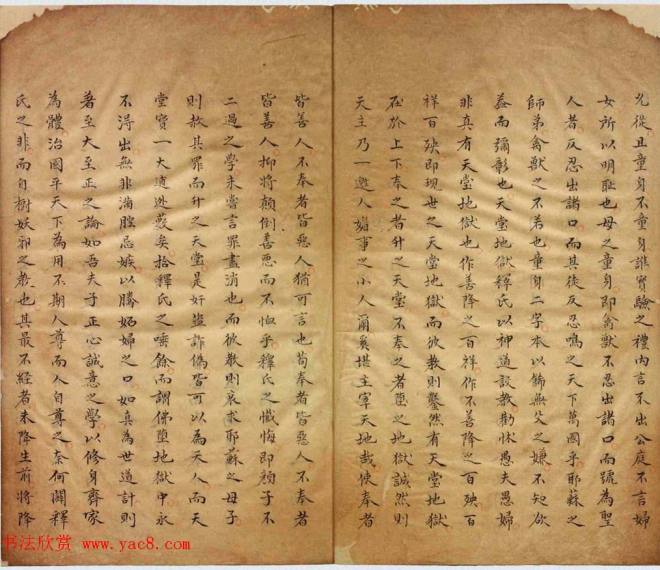 允從且童身不童身誰實驗之禮內言不出公庭不言婦
女所以明恥也母之童身即禽獸不忍出諸口而號為聖
人者反忍出諸口而其徒反忍鳴之天下萬國乎耶蘇之
師弟禽獸之不若也童身二字本以飾無父之嫌不知欲
葢而彌彰也天堂地獄釋氏以神道設教勸怵愚夫愚婦
非真有天堂地獄也作善降之百祥作不善降之百殃百
祥百殃即現世之天堂地獄而彼教則鑿然有天堂地獄
在於上下奉之者升之天堂不奉之者墮之地獄誠然則
天主乃一邀人媚事之小人爾奚堪主宰天地哉使奉者
皆善人不奉者皆惡人猶可言也苟奉者皆惡人不奉者
皆善人抑將顛倒善惡而不恤乎釋氏之懺悔即顏子不
二過之學未嘗言罪盡消也而彼教則哀求耶蘇之母子
則赦其罪而升之天堂是奸盜詐偽皆可以為天人而天
堂實一大逋逃藪矣拾釋氏之唾餘而謂佛墮地獄中永
不得出無非滿腔忌嫉以騰妬婦之口如真為世道計則
著至大至正之論如吾夫子正心誠意之學以修身齊家
為體治國平天下為用不期人尊而人自尊之奈何闢釋
氏之非而自樹妖邪之教也其最不經者未降生前將降
书法欣赏 www.yac8.com